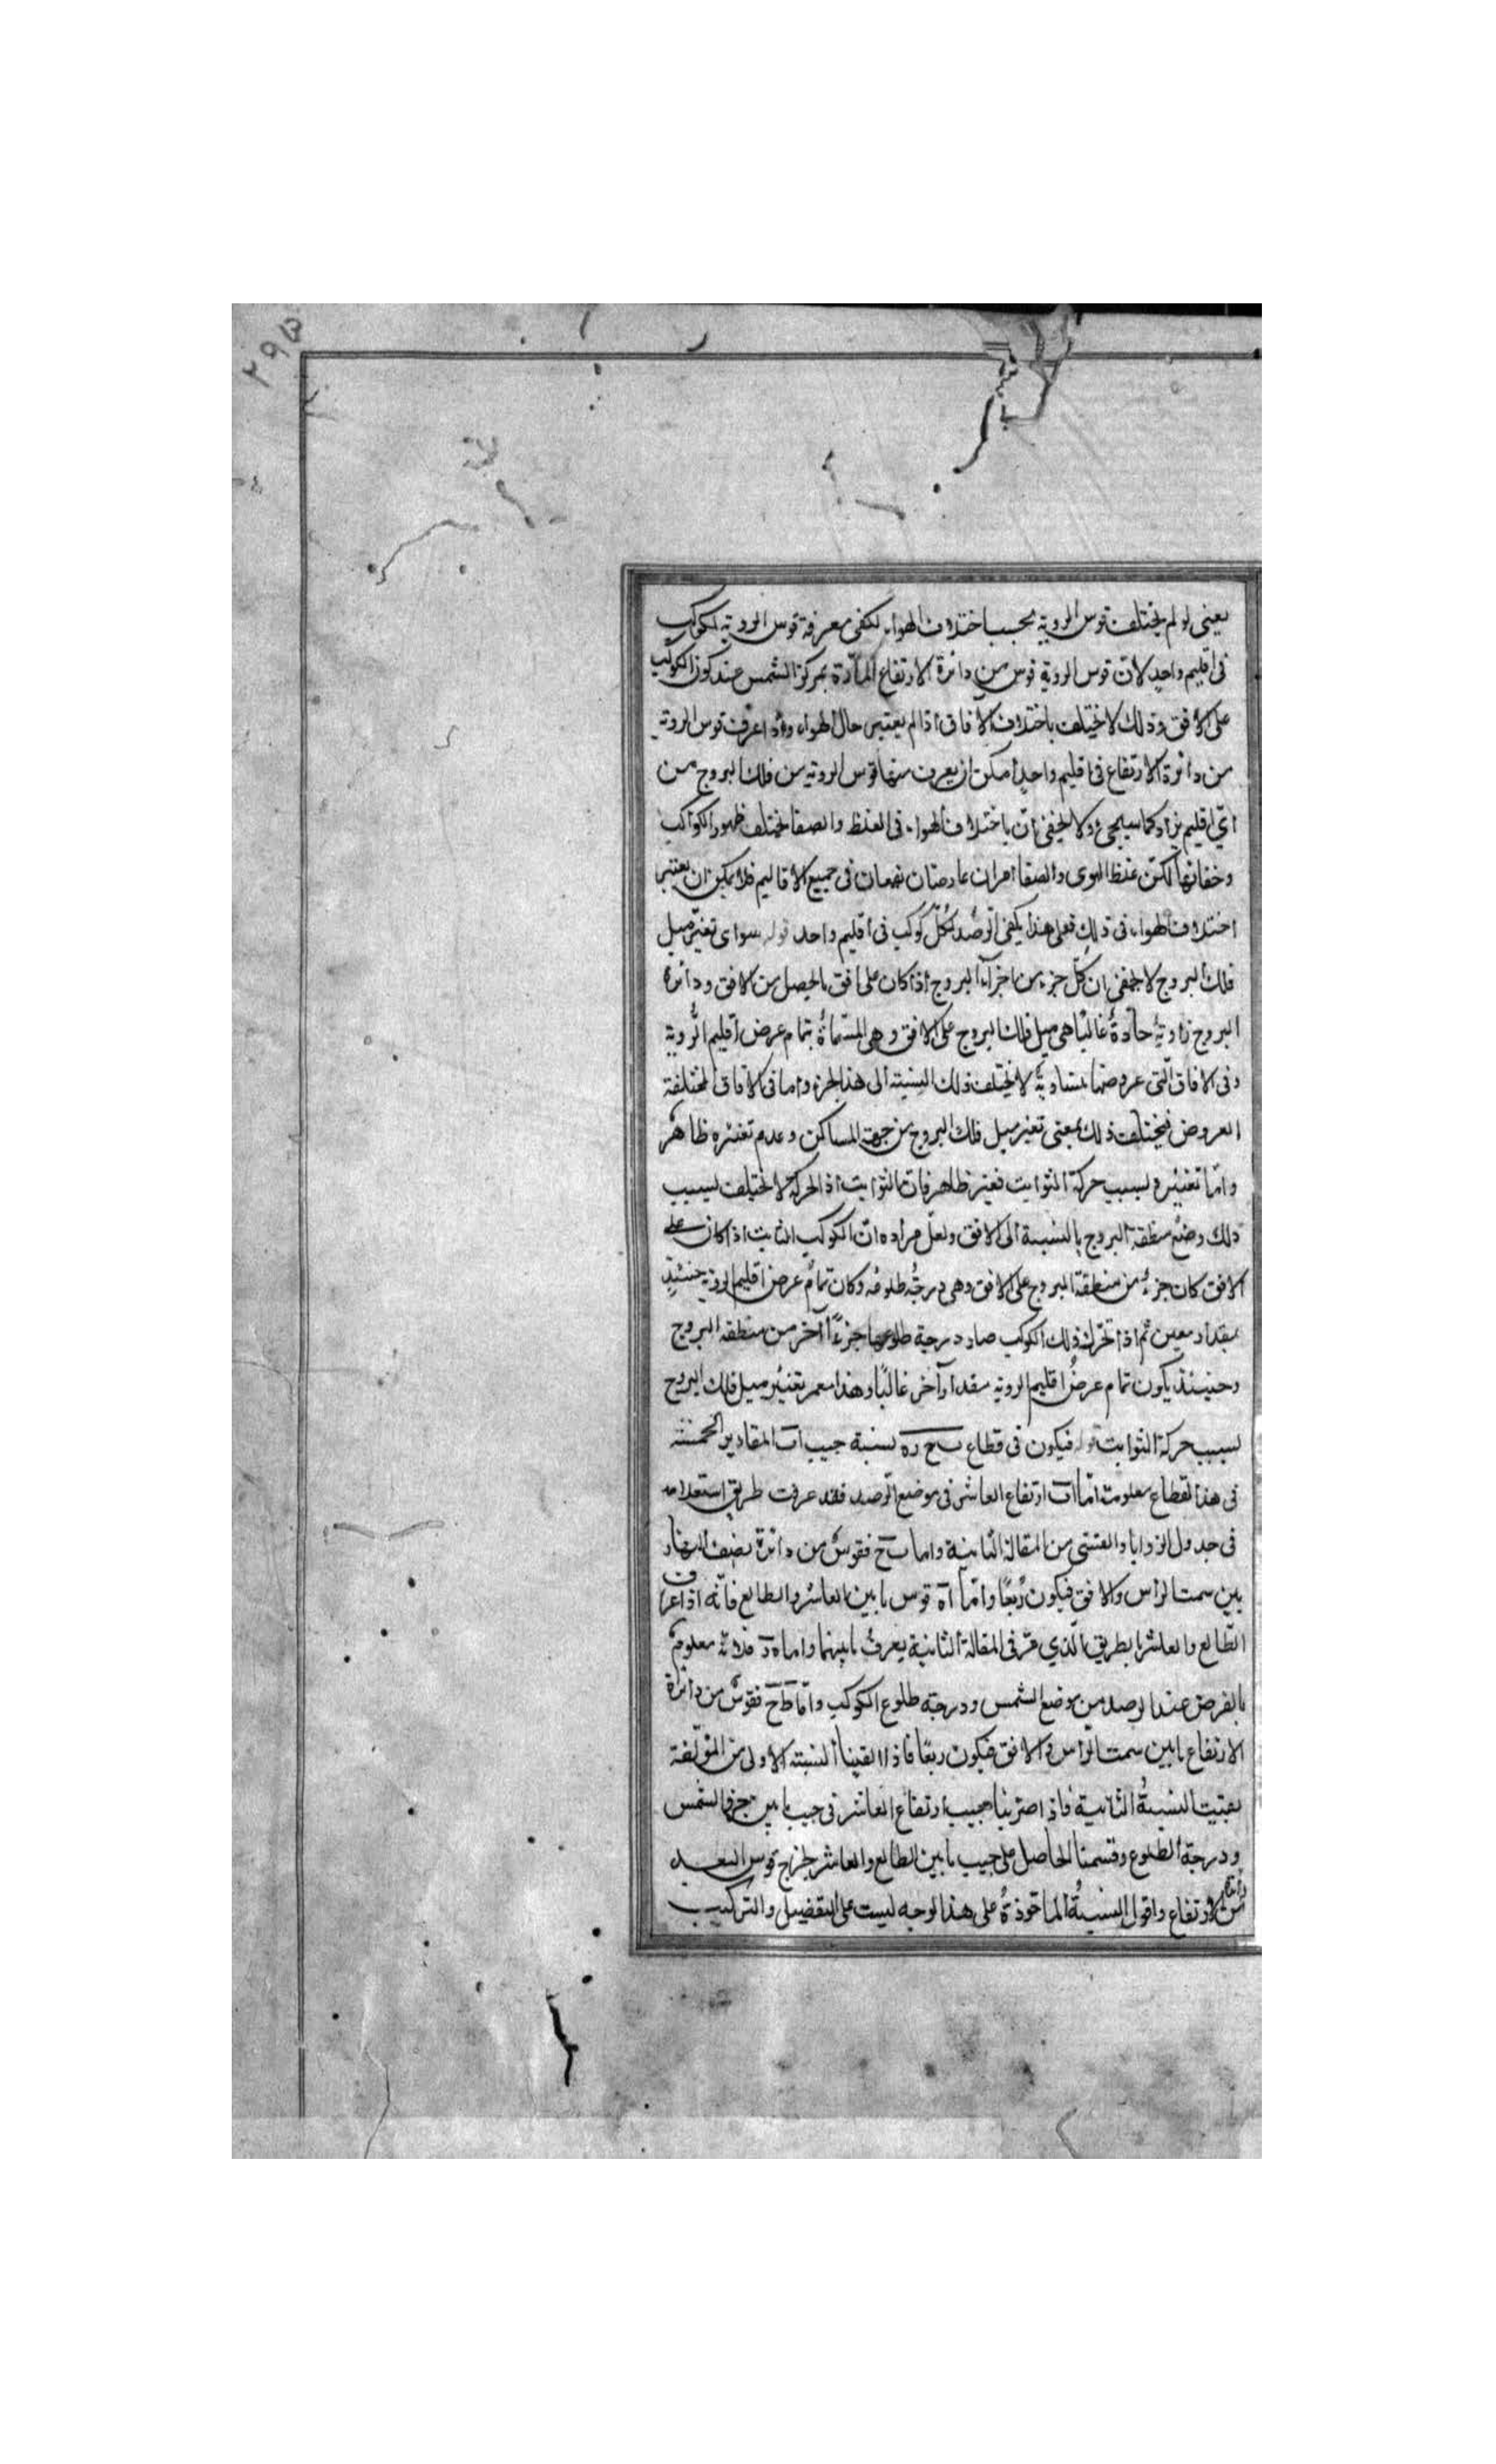 يعنى لو لم يختلف قوس الروية بحسب اختلاف الهواء لكفى معرفة قوس الروية لكوكب
فى اقليم واحد لان قوس الروية قوس من دائرة الارتفاع المارة بمركز الشمس عند كون الكوكب
على الافق وذلك لا يختلف باختلاف الآفاق اذا لم يعتبر حال الهواء واذا عرف قوس الروية
من دائرة الارتفاع فى اقليم واحد امكن ان يعرف منها قوس الروية من فلك البروج من
اى اقليم يراد كما سيجئ ولا يخفى ان باختلاف الهواء فى الغلظ والصفا يختلف ظهور الكواكب
وخفائها لكن غلظ الهوى والصفا امران عارضان يقعان فى جميع الاقاليم فلا يمكن ان يعتبر
اختلاف الهواء فى ذلك فعلى هذا يكفى الرصد لكل كوكب فى اقليم واحد قوله سواى تغير ميل
فلك البروج لا يخفى ان كل جزء من اجزاء البروج اذا كان على افق يحصل من الافق ودائرة
البروج زاوية حادة غالبا هى ميل فلك البروج على الافق وهى المسماة بتمام عرض اقليم الروية
وفى الافاق التى عروضها متساوية لا يختلف ذلك النسبة الى هذا الجزء واما فى الافاق المختلفة
العروض فيختلف ذلك بمعنى تغير ميل فلك البروج من جهة المساكن وعدم تغيره ظاهر
واما تغييره بسبب حركة الثوابت فغير ظاهر فان الثوابت اذا الحركة لا يختلف بسبب
ذلك وضع منطقة البروج بالنسبة الى الافق ولعل مراده ان الكوكب الثابت اذا كان على
الافق كان جزء من منطقة البروج على الافق وهى درجة طلوعه وكان تمام عرض اقليم الروية حينئذ
بمقدار معين ثم اذا تحرك ذلك الكوكب صار درجة طلوعها جزءا آخر من منطقة البروج
وحينئذ يكون تمام عرض اقليم الروية مقدار آخر غالبا وهذا معر تغيير ميل فلك البروج
بسبب حركة الثوابت قوله فيكون فى قطاع ب ح ر ه نسبة جيب ا ب المقادير الخمسة
فى هذا القطاع معلومة اما ا ب ارتفاع العاشر فى موضع الرصد فقد عرفت طريق استعلامه
فى جدول الزوايا والقسى من المقالة الثانية واما ب ح فقوس من دائرة نصف النهار
بين سمت الراس والافق فيكون ربعا واما ا ه قوس ما بين العاشر والطالع فانه اذا عرف
الطالع والعاشر بالطريق الذي مر فى المقالة الثانية يعرف ما بينهما واما ه د فلانه معلوم
بالفرض عند الرصد من موضع الشمس ودرجة طلوع الكوكب واما ط ح فقوس من دائرة
الارتفاع ما بين سمت الراس والافق فيكون ربعا فاذا القينا النسبة الاولى من المؤلفة
بقيت النسبة الثانية فاذا ضربنا جيب ارتفاع العاشر فى جيب ما بين جزء الشمس
ودرجة الطلوع وقسمنا الحاصل على جيب ما بين الطالع والعاشر لخرج قوس البعد
من دائرة الارتفاع واقول النسبة الماخوذة على هذا الوجه ليست على التفضيل والتركيب